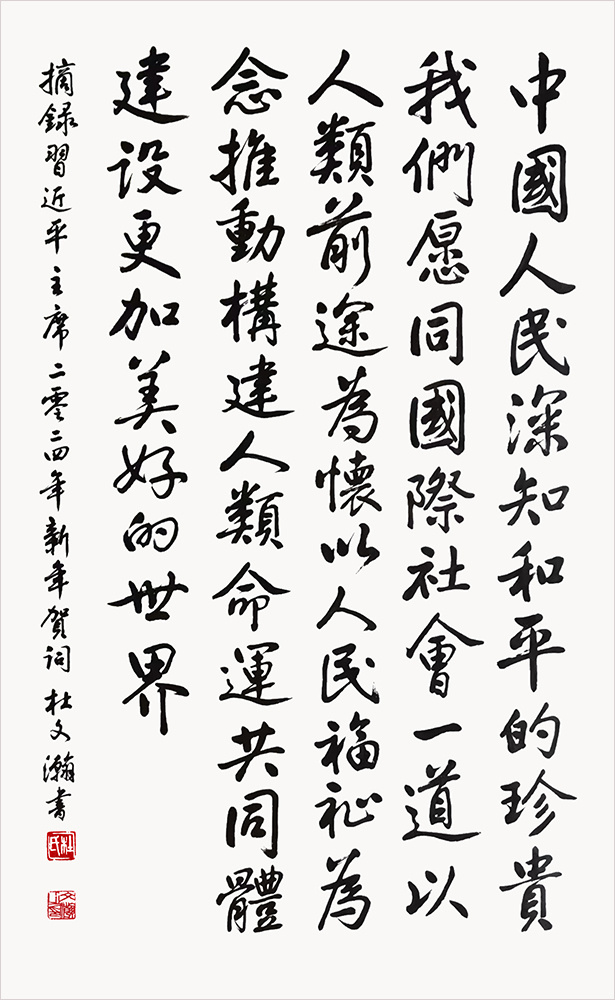 中國人民深知和平的珍貴
我們愿同國際社會一道以
人類前途為懷以人民福祉為
念推動構建人類命運共同體
建设更加美好的世界
摘録習近平主席二零二四年新年贺词 杜文瀚書
杜氏